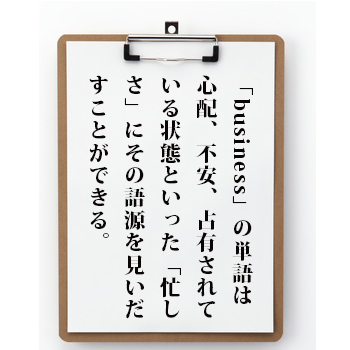 「business」の単語は
心配、不安、占有されて
いる状態といった「忙し
さ」にその語源を見いだ
すことができる。